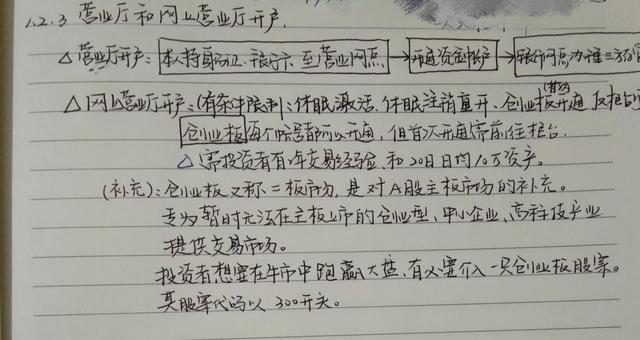 1.2.3 营业厅和网上营业厅开户.
△ 营业厅开户: 本人持身份证、银行卡、至营业网点 → 开通资金帐户 → 银行网点办理三方存管
△ 网上营业厅开户: (有条件限制): 休眠激活、休眠注销重开、创业板开通
创业板每个帐号都可以开通, 但首次开通需前往柜台.
△ 需投资者有2年交易经验, 和20日日均10万资产.
(补充): 创业板又称二板市场, 是对A股主板市场的补充。
专为暂时无法在主板上市的创业型、中小企业、高科技产业
提供交易市场。
投资者想要在牛市中跑赢大盘, 有必要介入一只创业板股票。
其股票代码以 300开头。